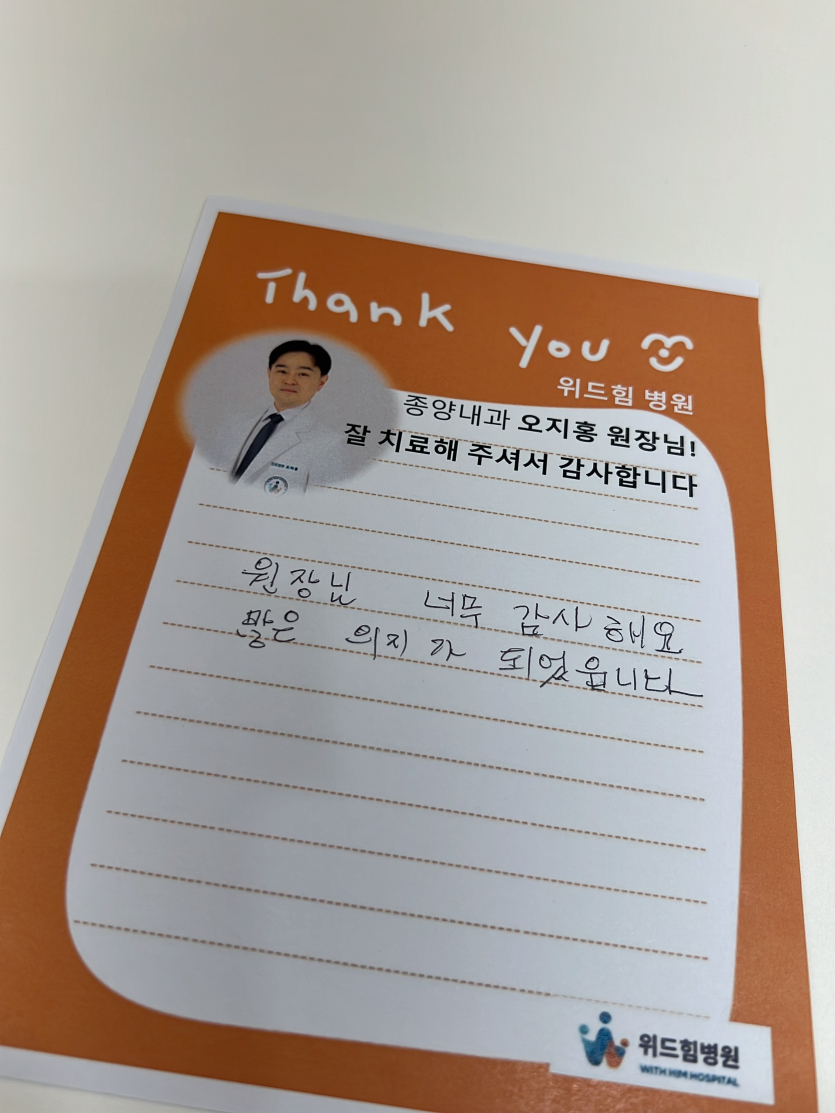 Thank you
위드힘 병원
종양내과 오지홍 원장님!
잘 치료해 주셔서 감사합니다
원장님 너무 감사해요
많은 의지가 되었읍니다
위드힘병원
WITH HIM HOSPITAL